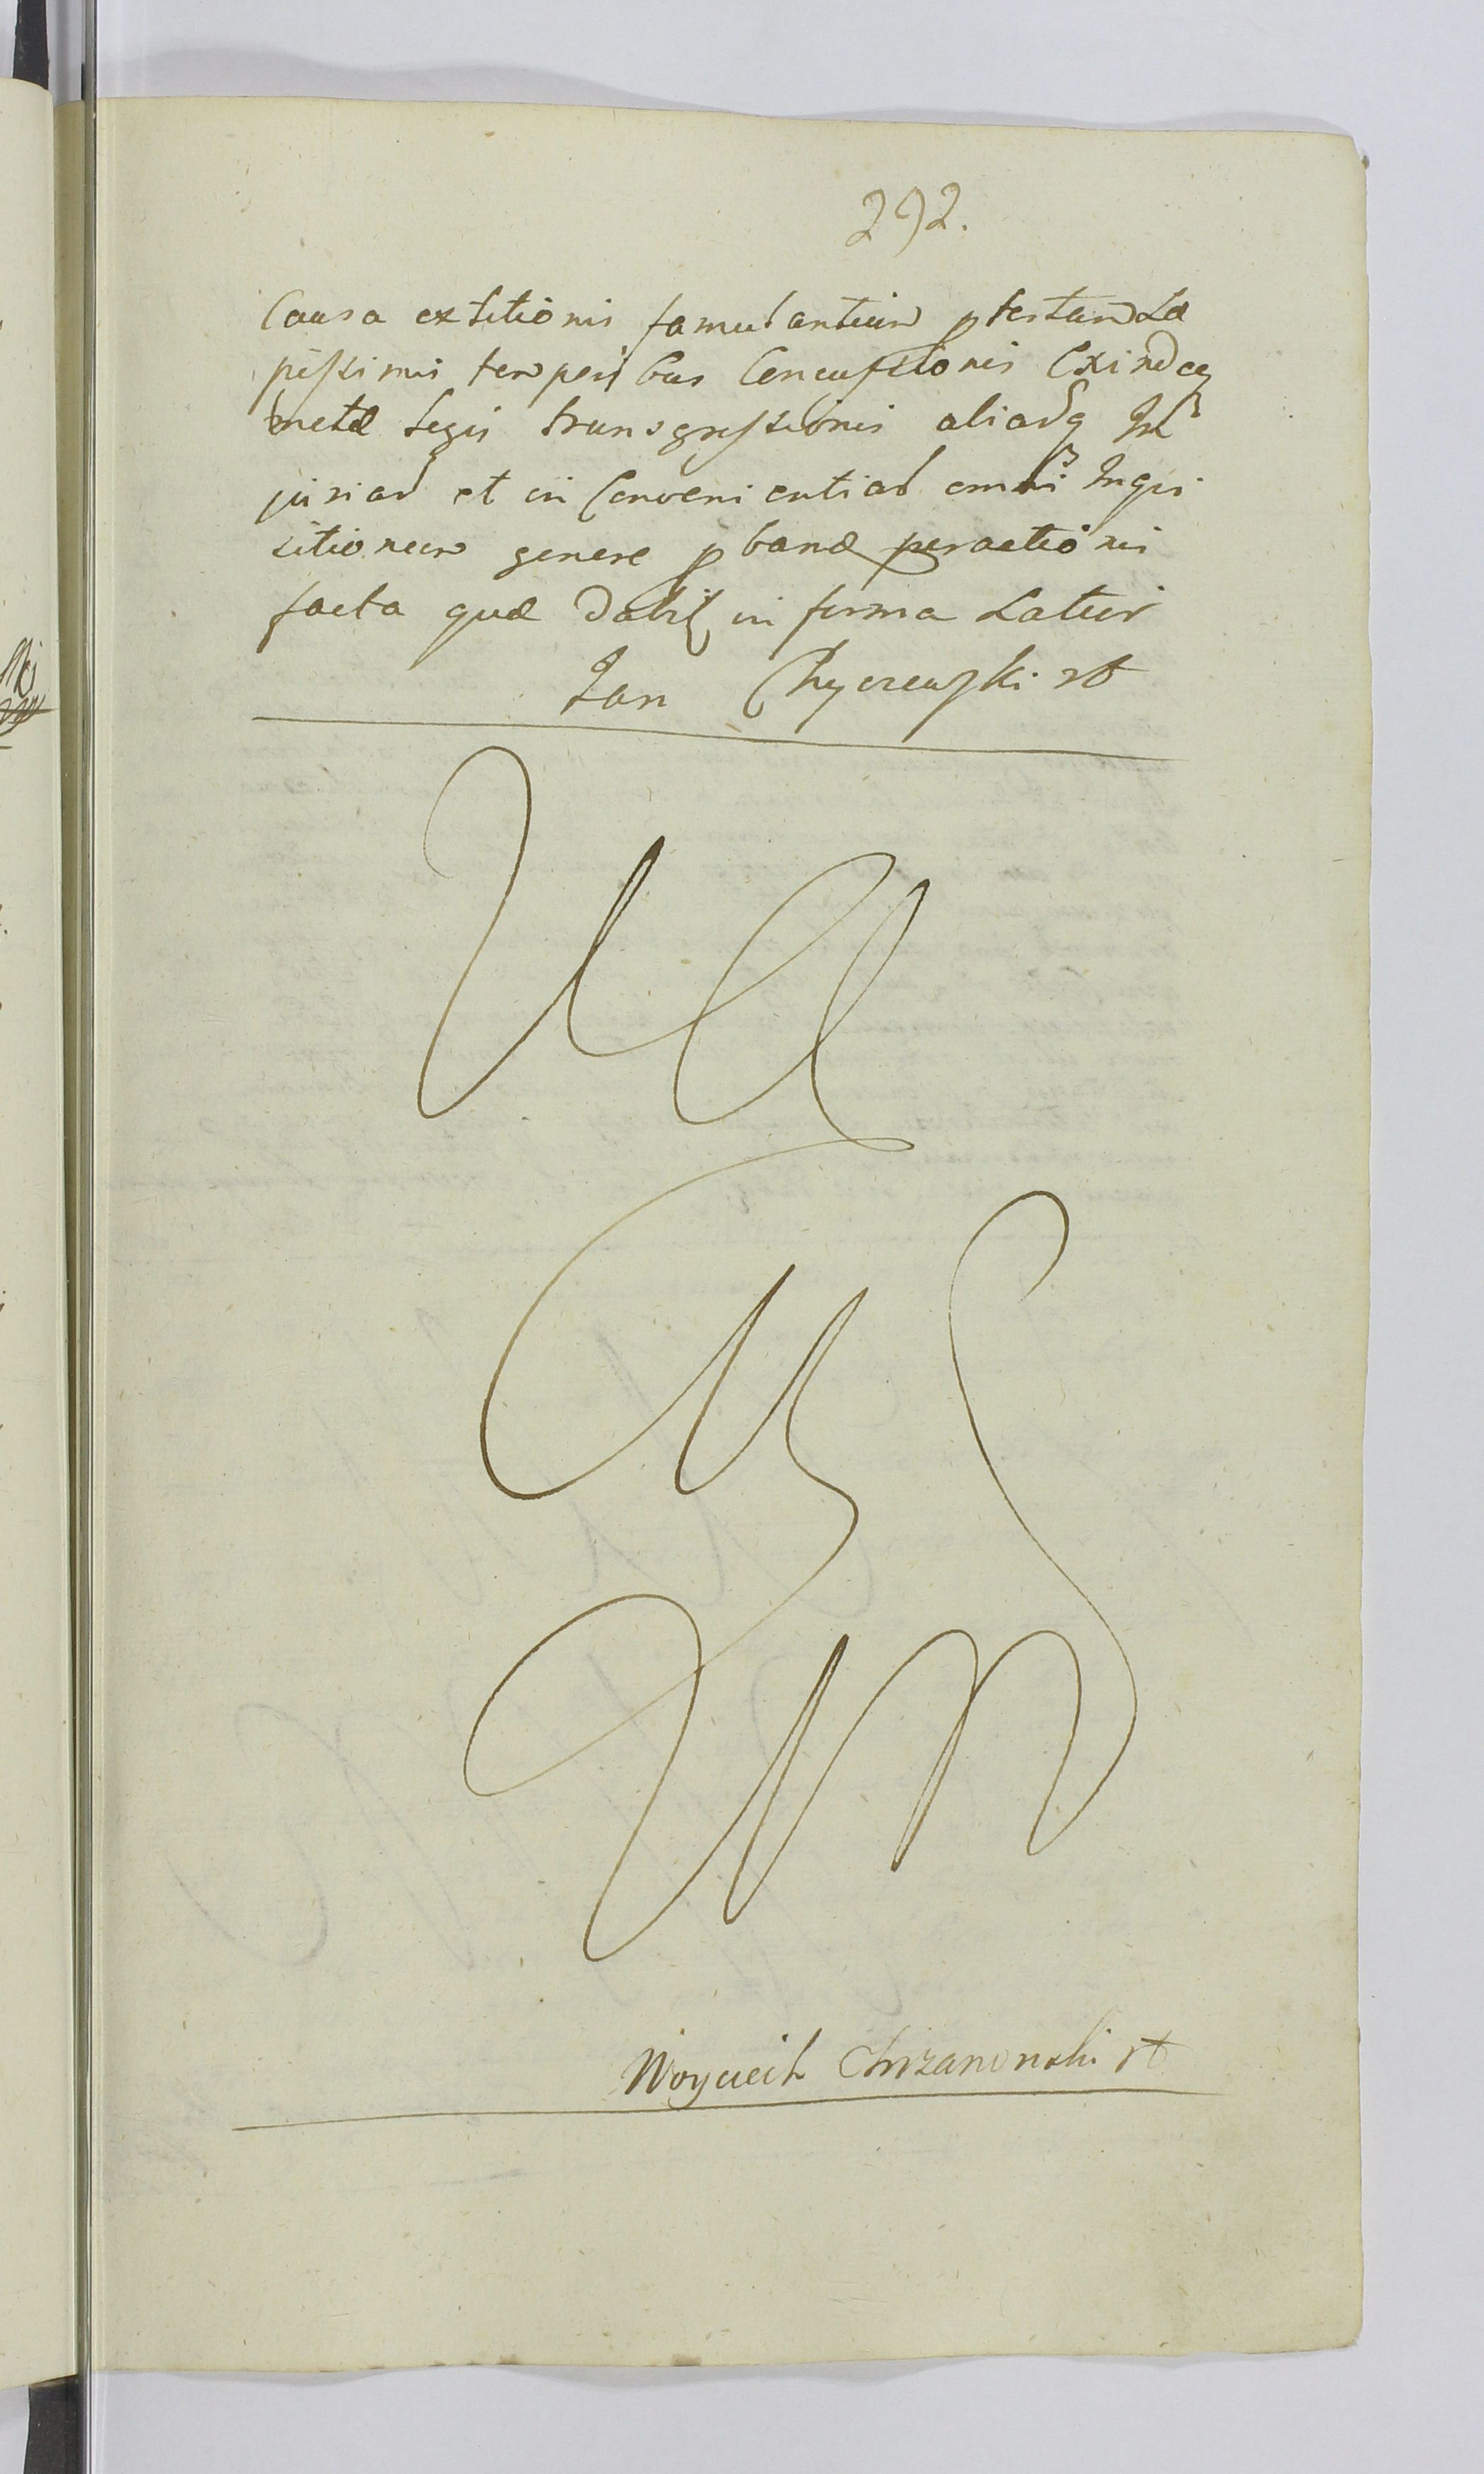 292.
Causa extitionis famulantium ptestandæ
pessimis temperibus Concussionis Exindeq
metæ Legis transgressionis aliasq In
jurias et in Convenientias omni Inqvi
sitionum genere pbandæ peractionis
facta quæ dabit in forma Latur
Jan Chyczewski
Woyciech Chrzanowski